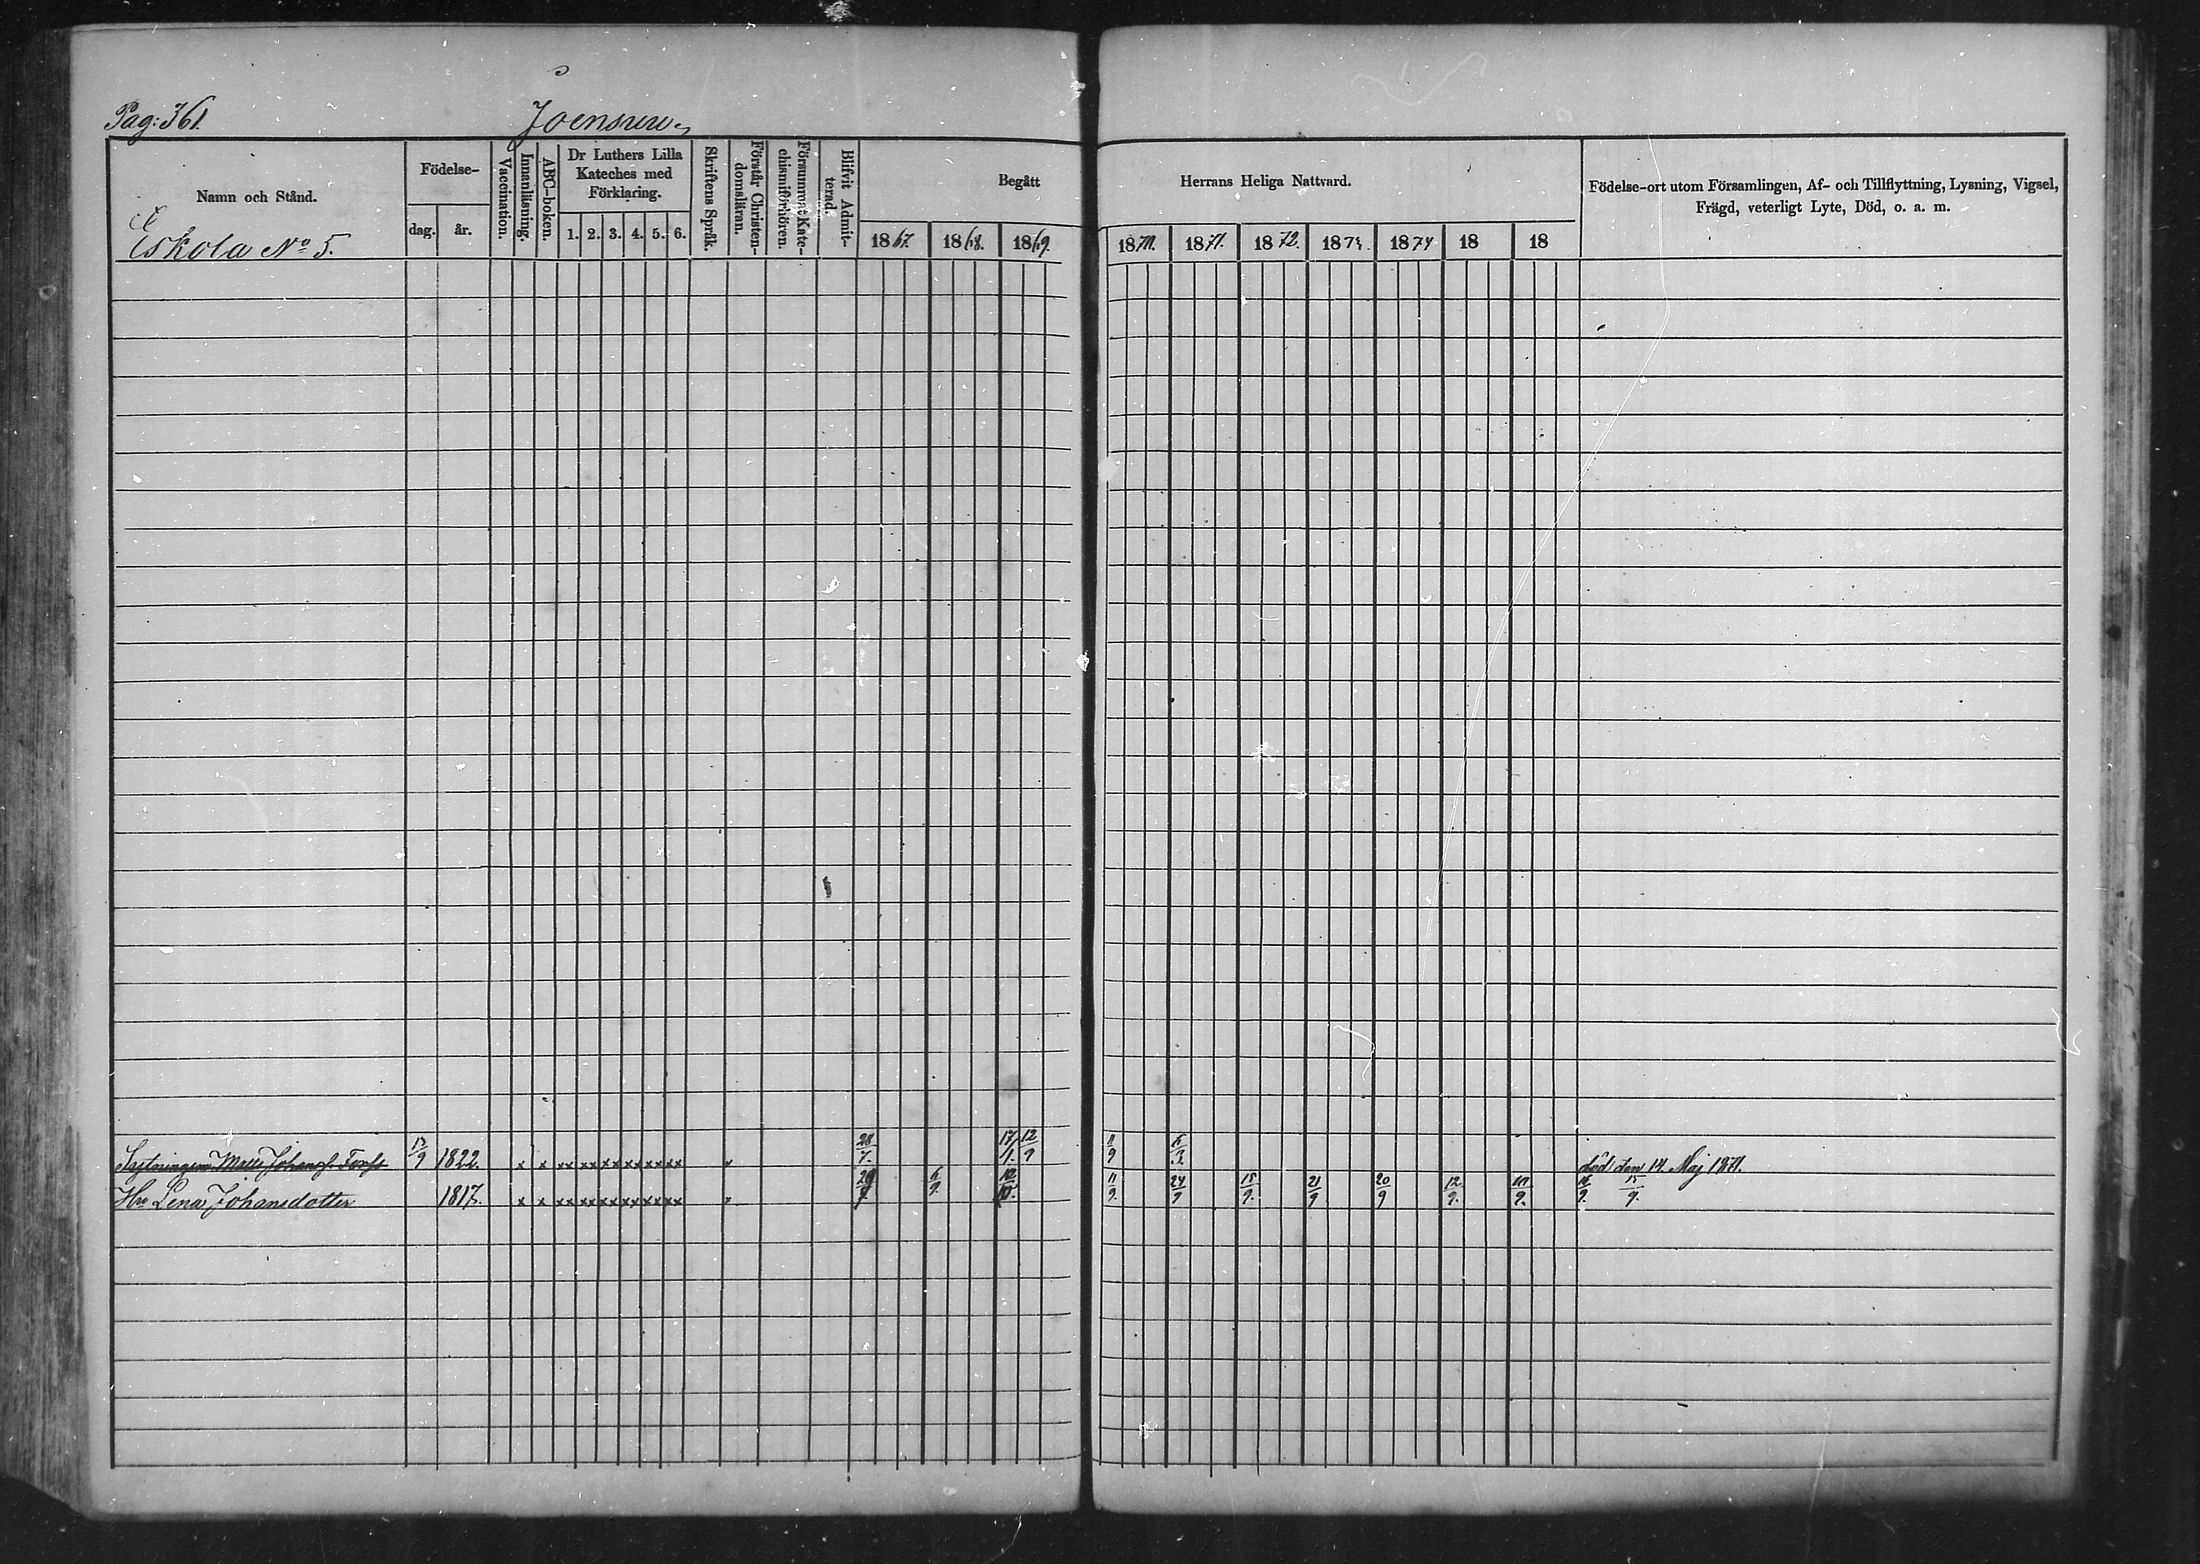 Pag: 361.
Joensuu.
Namn och Stånd.
Födelse-
dag. år.
Vaccination.
Innanläsning.
ABC-boken.
Dr Luthers Lilla
Kateches med
Förklaring.
1. 2. 3. 4. 5. 6.
Skriftens Språk.
Förstår Christen-
domsläran.
Försummat Kate-
chismiförhören.
Blifvit Admit-
terad.
Begått Herrans Heliga Nattvard.
1867. 1868. 1869. 1870. 1871. 1872. 1873. 1874 18 18
Födelse-ort utom Församlingen, Af- och Tillflyttning, Lysning, Vigsel,
Frägd, veterligt Lyte, Död, o. a. m.
Eskola No 5.
13/9 1822. x x xx xx xx xx xx xx 28/7. 17/1. 12/9 11/9 död den 14 Maj 1871.
Hu Lena Johansdotter 1817. x x xx xx xx xx xx xx 6/9. 11/9. 24/9 15/9. 21/9 20/9 12/9. 15/9.